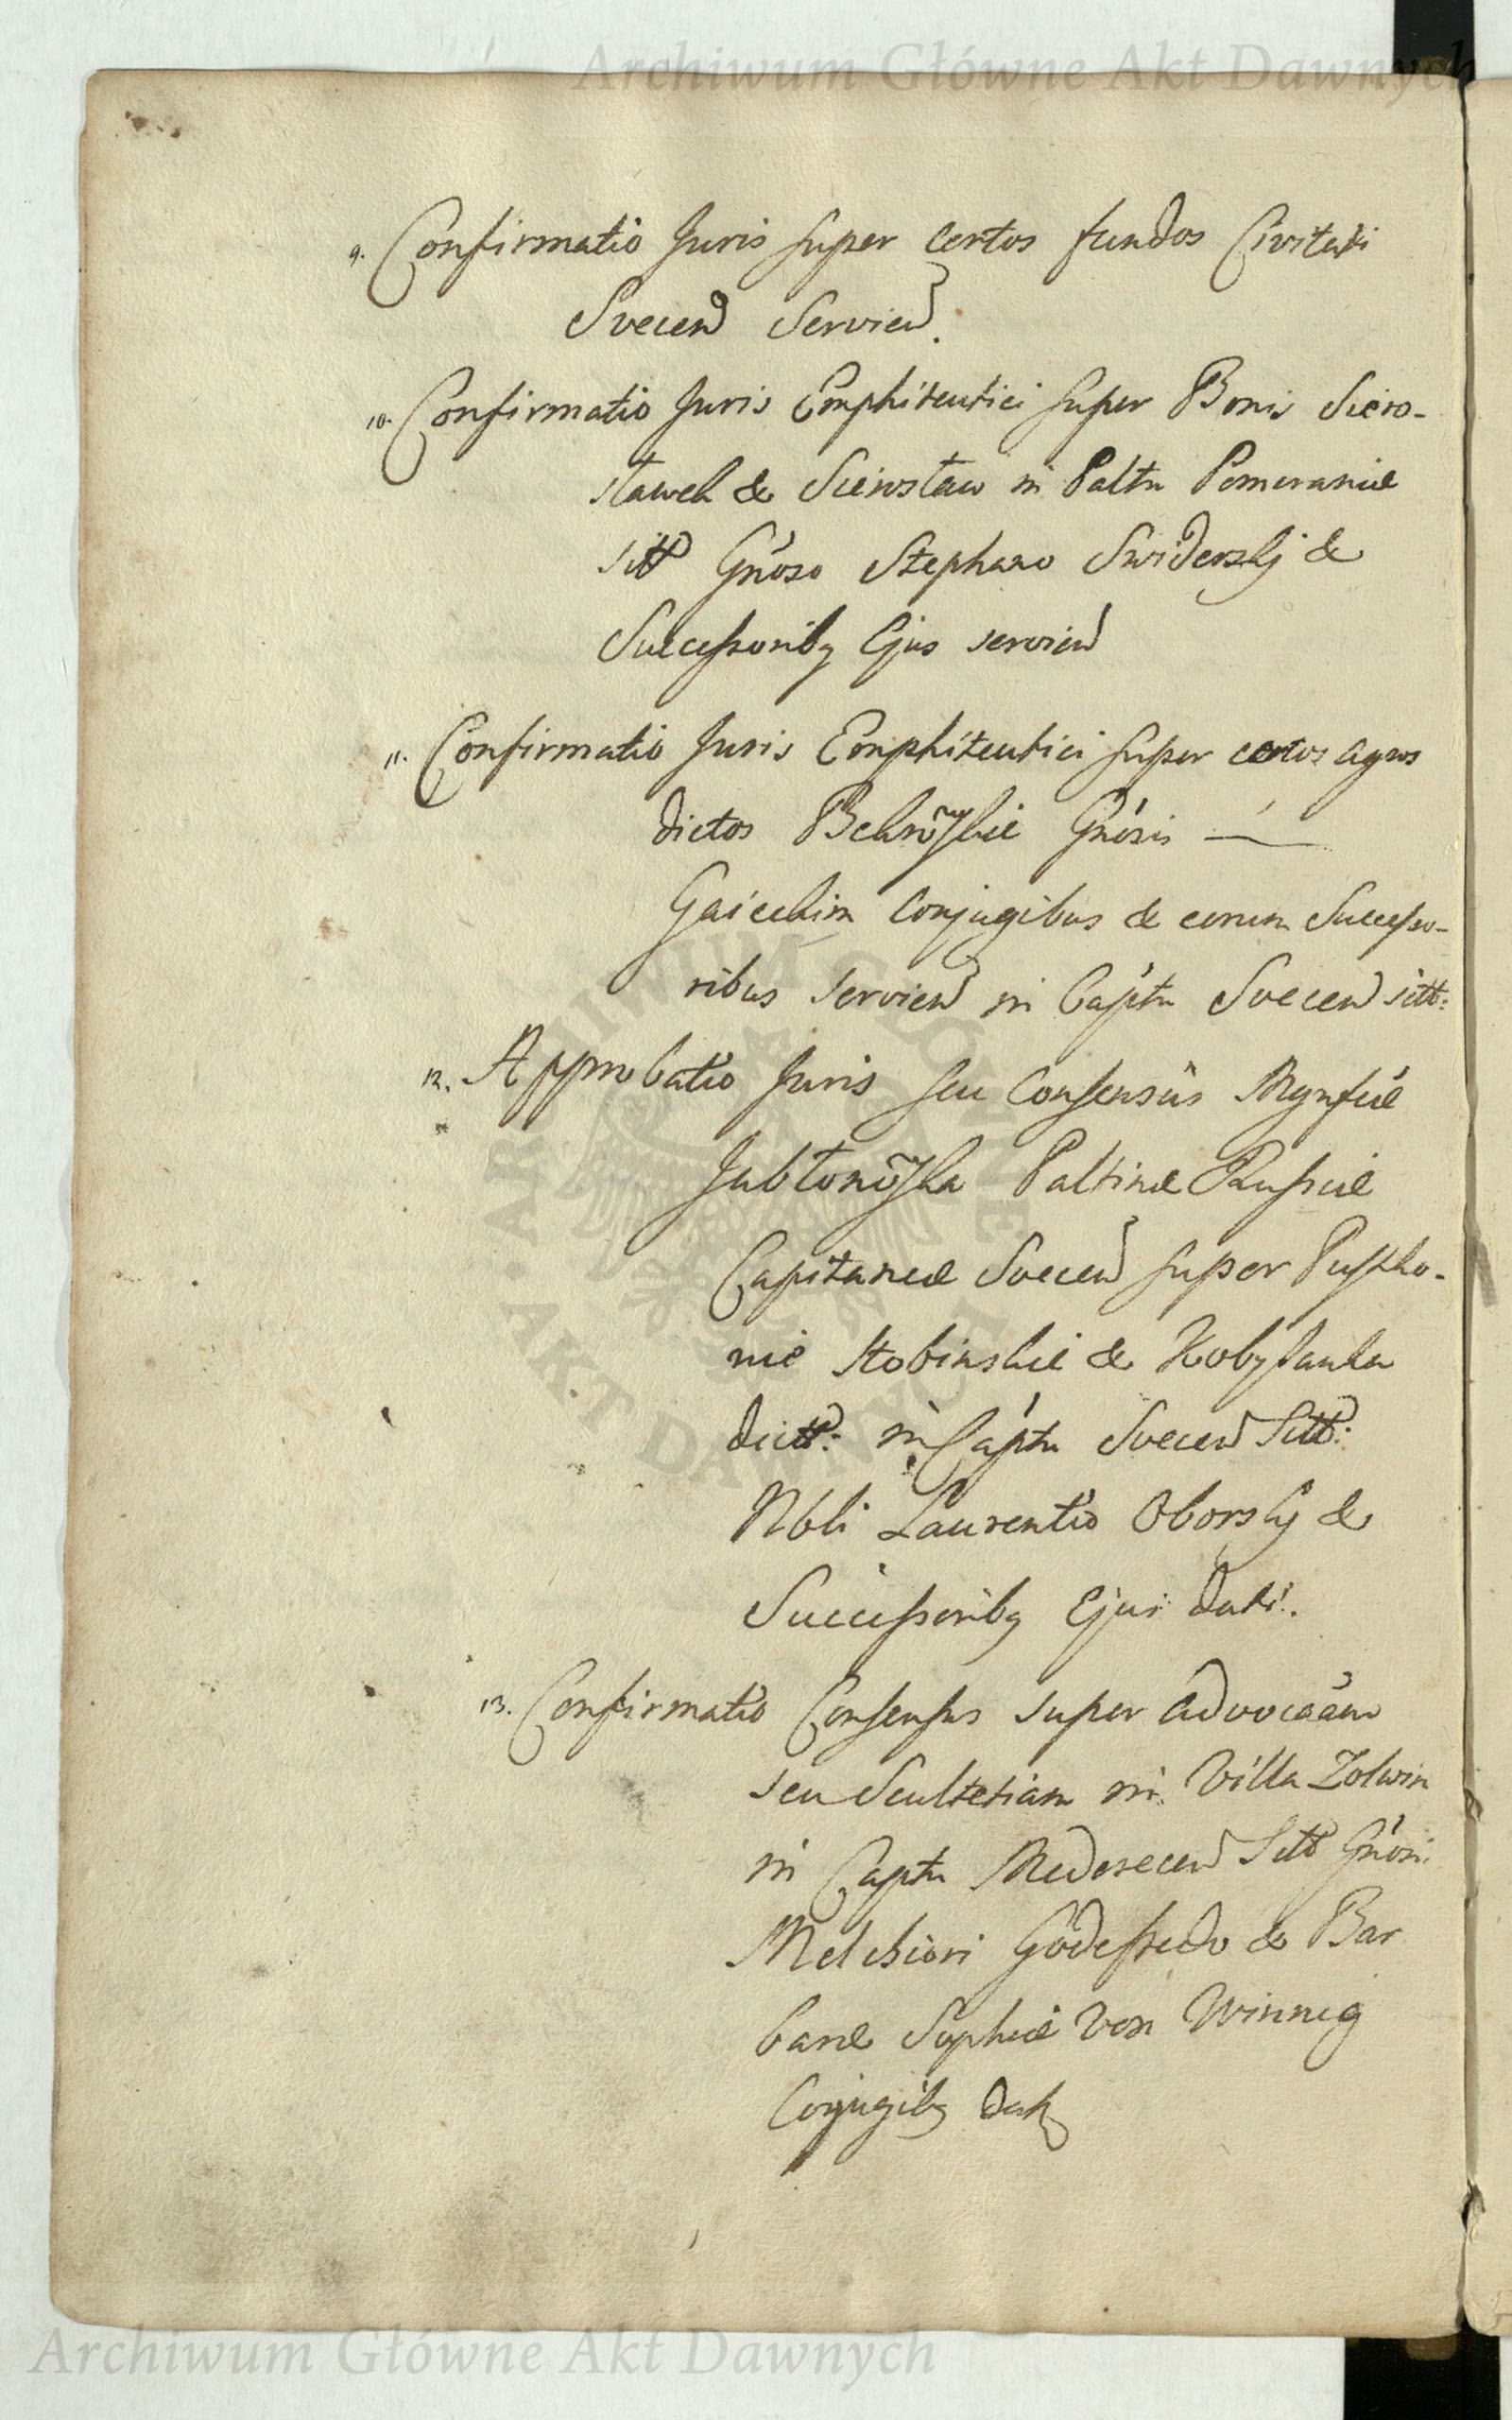 Archiwum Główne Akt Dawnych
9. Confirmatio Juris super certos fundos Civitati
Svecen Servien.
10. Confirmatio Juris Emphiteutici super Bonis Siero-
stawek & Sierostaw in Paltu Pomeraniæ
sitt Gnoso Stephano Swiderskj &
Successoribq Ejus servien
11. Confirmatio Juris Emphiteutici super certos agros
dictos Gnosis —
Conjugibus & eorum Successo-
ribus servien in Captu Svecen sitt:
12. Approbatio Juris seu Consensus Mgnfcæ
Jabłonoska Paltinæ Russiæ
Capitaneæ Svecen super Pustko-
nie Stobinskie & Kobylanka
dictt: in Captu Svecen Sitt:
Nbli Laurentio Oborskj &
Successoribq Ejus dati.
13. Confirmatio Consensus super advocaam
seu Scultetiam in Villa Zolwin
in Captu Mederecen Sitt Gnosi
Melchiori Godefredo & Bar
baræ Sophiæ Von Winnig
Conjugibq dati
ARCHIWUM GŁÓWNE
AKT DAWNYCH
Archiwum Główne Akt Dawnych